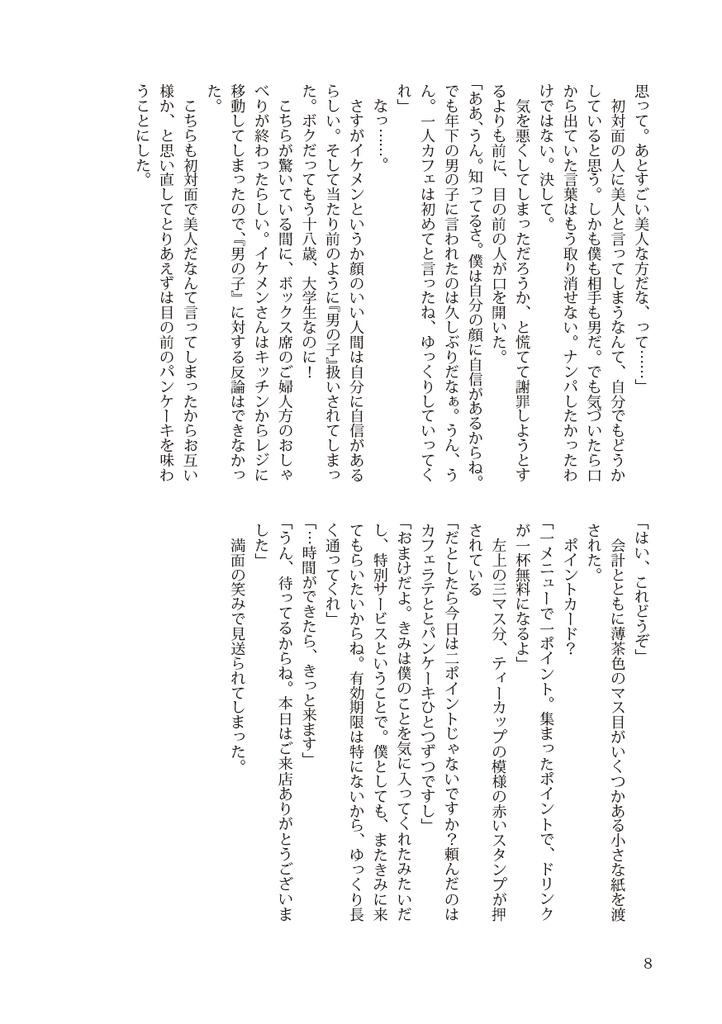 思って。あとすごい美人な方だな、って……」
　初対面の人に美人と言ってしまうなんて、自分でもどうか
していると思う。しかも僕も相手も男だ。でも気づいたら口
から出ていた言葉はもう取り消せない。ナンパしたかったわ
けではない。決して。
　気を悪くしてしまっただろうか、と慌てて謝罪しようとす
るよりも前に、目の前の人が口を開いた。
「ああ、うん。知ってるさ。僕は自分の顔に自信があるからね。
でも年下の男の子に言われたのは久しぶりだなぁ。うん、う
ん。一人カフェは初めてと言ったね、ゆっくりしていってく
れ」
　なっ……。
　さすがイケメンというか顔のいい人間は自分に自信がある
らしい。そして当たり前のように『男の子』扱いされてしまっ
た。ボクだってもう十八歳、大学生なのに！
　こちらが驚いている間に、ボックス席のご婦人方のおしゃ
べりが終わったらしい。イケメンさんはキッチンからレジに
移動してしまったので、『男の子』に対する反論はできなかっ
た。
　こちらも初対面で美人だなんて言ってしまったからお互い
様か、と思い直してとりあえずは目の前のパンケーキを味わ
うことにした。
「はい、これどうぞ」
　会計とともに薄茶色のマス目がいくつかある小さな紙を渡
された。
　ポイントカード？
「一メニューで一ポイント。集まったポイントで、ドリンク
が一杯無料になるよ」
　左上の三マス分、ティーカップの模様の赤いスタンプが押
されている
「だとしたら今日は二ポイントじゃないですか？頼んだのは
カフェラテととパンケーキひとつずつですし」
「おまけだよ。きみは僕のことを気に入ってくれたみたいだ
し、特別サービスということで。僕としても、またきみに来
てもらいたいからね。有効期限は特にないから、ゆっくり長
く通ってくれ」
「…時間ができたら、きっと来ます」
「うん、待ってるからね。本日はご来店ありがとうございま
した」
　満面の笑みで見送られてしまった。
8